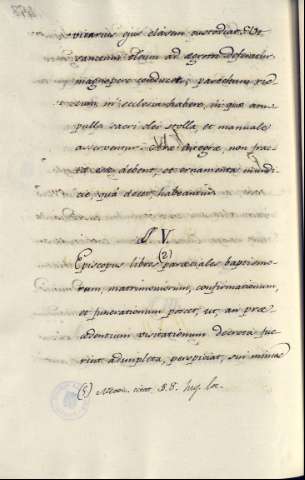 vicarius ejus etiam custodiat. Ut
sanctum oleum ad ægrotos deferatur
magnopere conducet, parochum vie
culum in ecclesia habere, in quo am
pulla sacri olei stolla, et manuale
asserventur. Aræ integræ non frac
tæ esse debent, et ornamenta mundi
cie, qua decet, habeantur.
§. V.
Episcopus libros (2) paræciales baptismo
rum, matrimoniorum, confirmationum,
et funerationum poscet, ut, an præ
cedentium visitationum decreta fue
rint adimpleta, perspiciat, sin minus
(2) Mon. citat. §. 8. huj. loc.